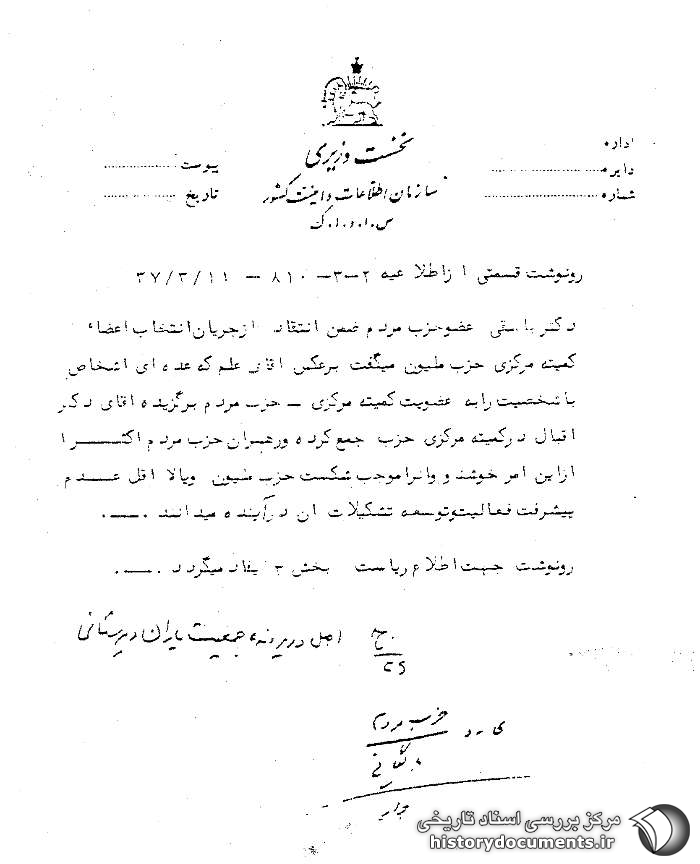 نخست وزیری
سازمان اطلاعات و امنیت کشور
س.ا.و.ا.ک
اداره
دایره
شماره
پیوست
تاریخ
رونوشت قسمتی از اطلاعیه ۲-۳- ۸۱۰ - ۳۷/۳/۱۱
دکتر باسقی عضو حزب مردم ضمن انتقاد از جریان انتخاب اعضاء
کمیته مرکزی حزب ملیون میگفت برعکس اقای علم که عده ای اشخاص
با شخصیت را به عضویت کمیته مرکزی - حزب مردم برگزیده اقای دکتر
اقبال در کمیته مرکزی حزب جمع کرده و رهبران حزب مردم اکثرا
از این امر خوشند و وانرا موجب شکست حزب ملیون ویالا اقل عدم
پیشرفت فعالیت و توسعه تشکیلات ان در آینده میدانند .
رونوشت جهت اطلاع ریاست بخش ۳ ایفاد میگردد .
اصل در پرونده جمعیت یاران دبیرستانی
حزب مردم
بایگانی
مرکز بررسی اسناد تاریخی
historydocuments.ir